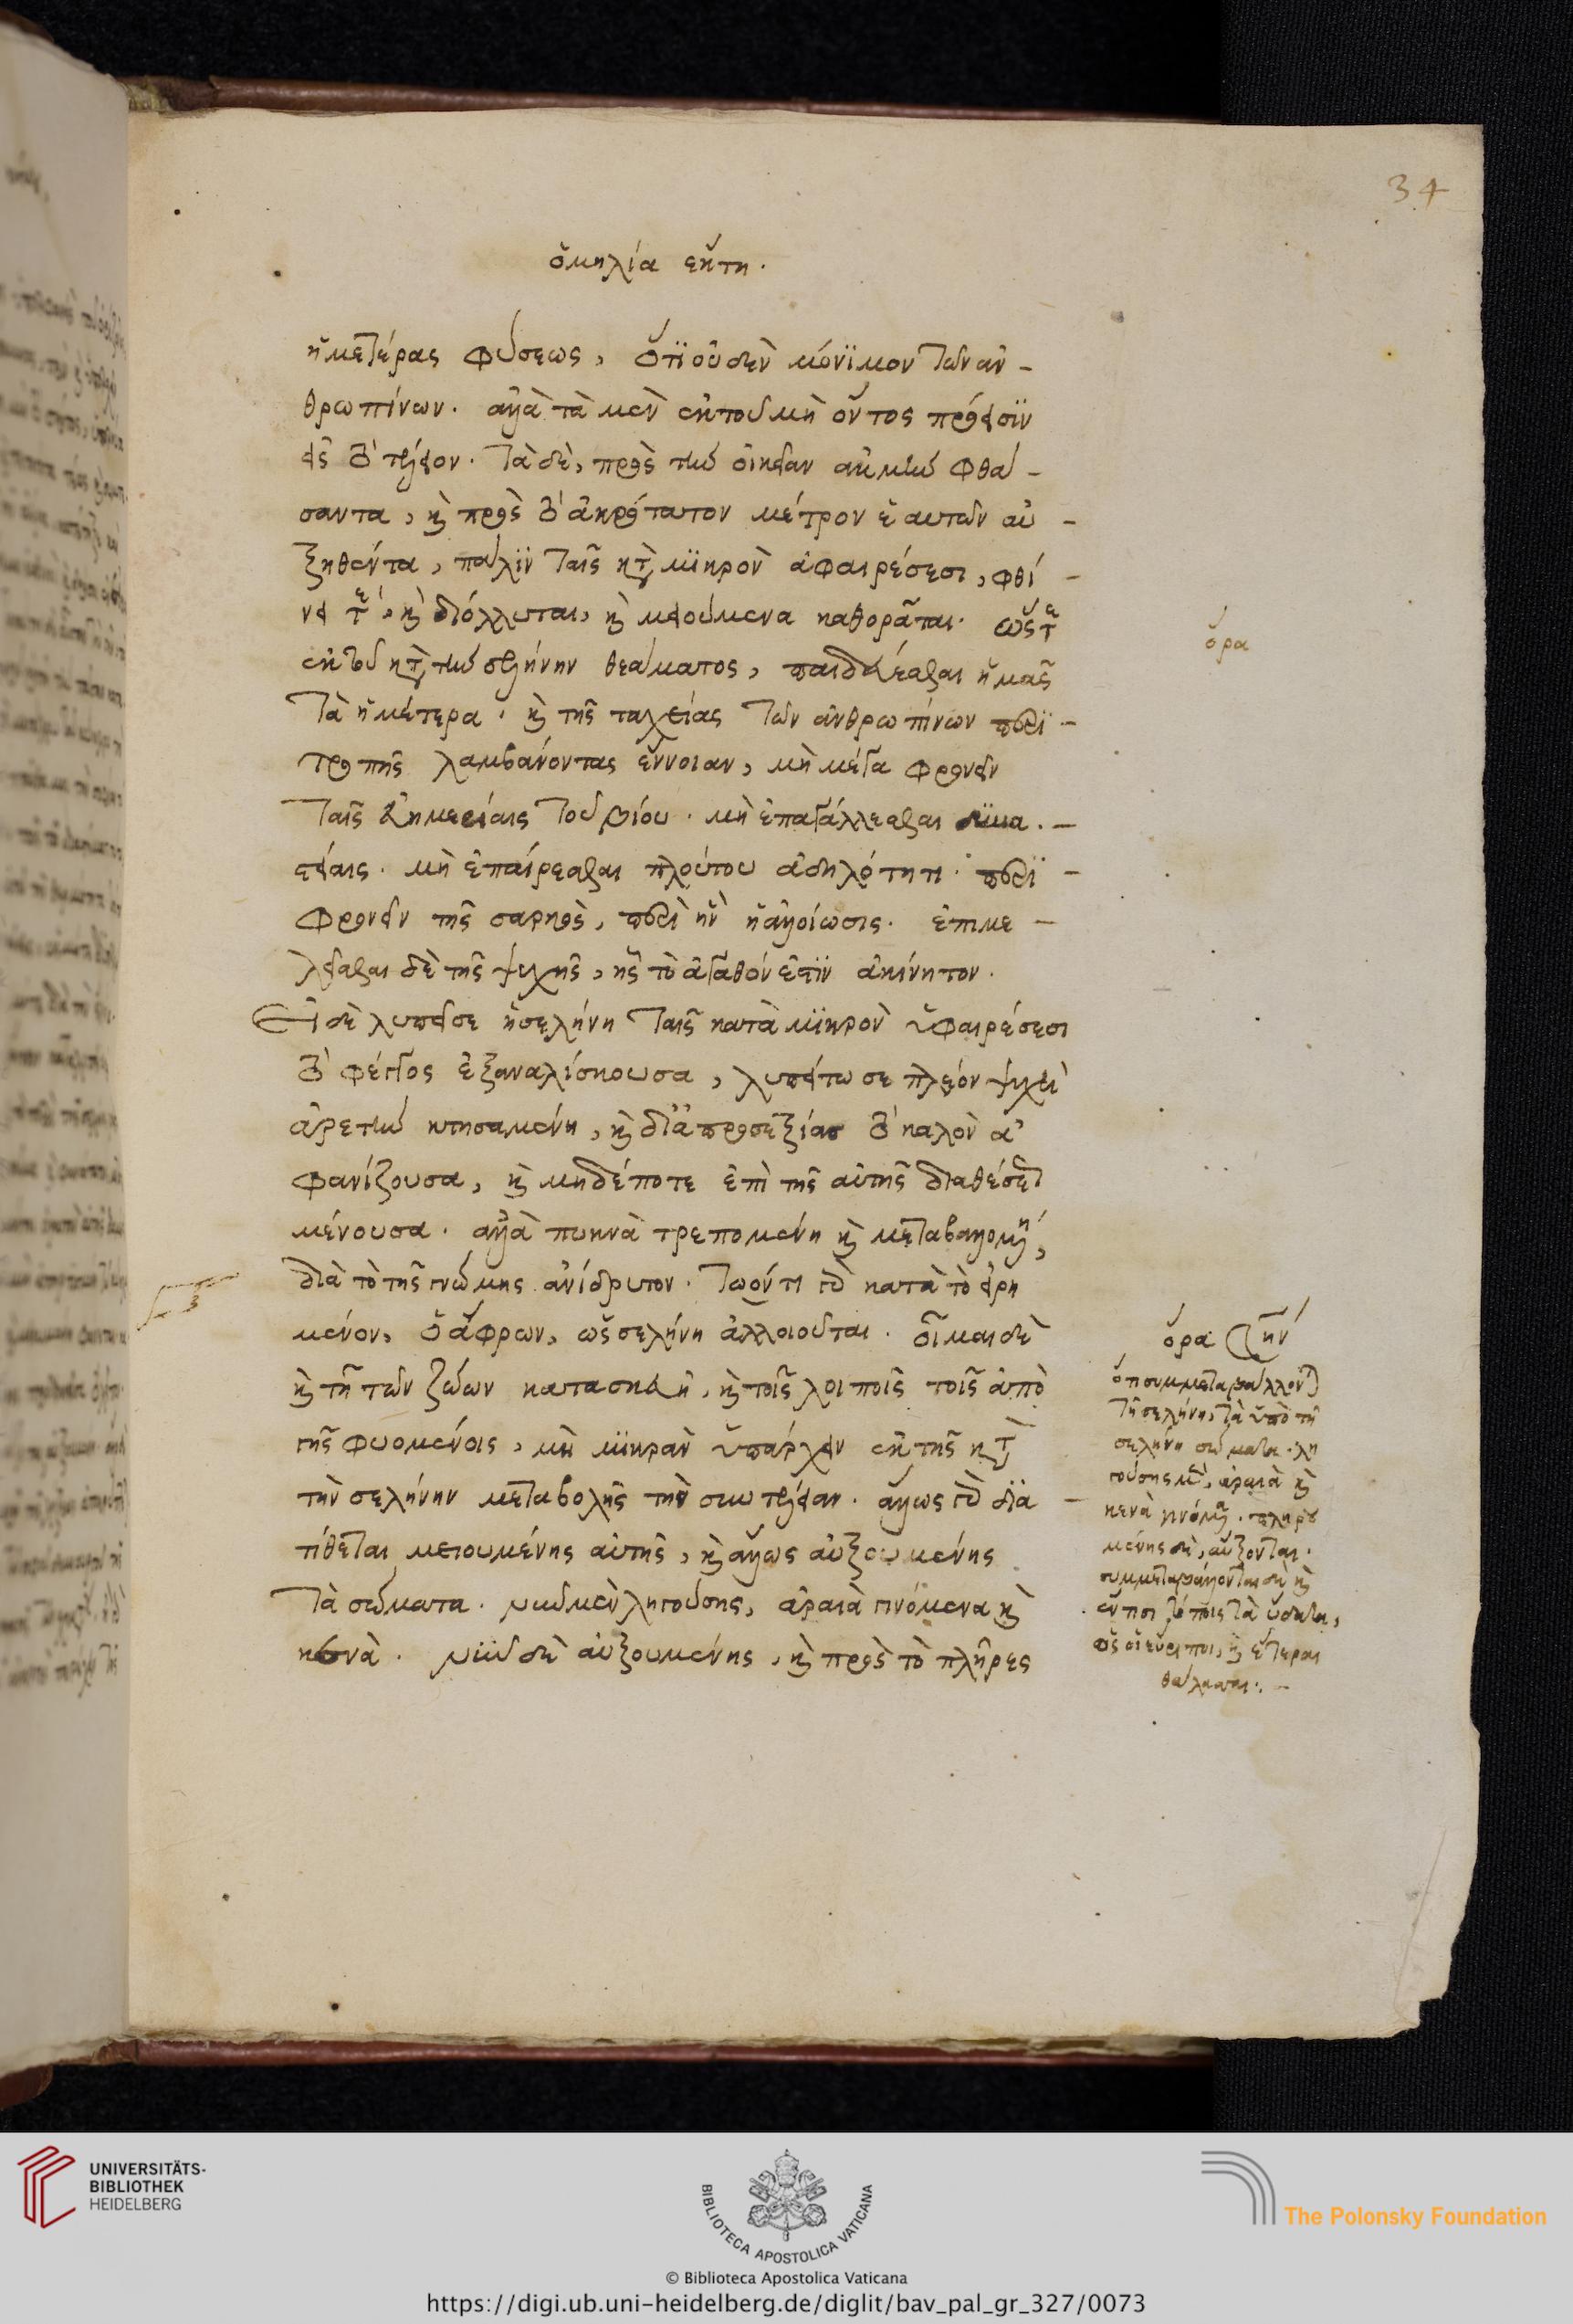 34
ὁμηλία ἕκτη.
ἡμετέρας φύσεως, ὅτι οὐδὲν μόνιμον τῶν ἀν-
θρωπίνων. ἀλλὰ τὰ μὲν ἐκ τοῦ μὴ ὄντος πρόεισιν
εἰς τὸ τέλειον. τὰ δὲ, πρὸς τὴν οἰκείαν ἀκμὴν φθά-
σαντα, καὶ πρὸς τὸ ἀκρότατον μέτρον ἑαυτῶν αὐ-
ξηθέντα, πάλιν ταῖς κατὰ μικρὸν ἀφαιρέσεσι, φθί-
νει τε, καὶ διόλλυται, καὶ μειούμενα καθορᾶται. ὥστε
ἐκ τοῦ κατὰ τὴν σελήνην θεάματος, παιδεύεσθαι ἡμᾶς
τὰ ἡμέτερα. καὶ τῆς ταχείας τῶν ἀνθρωπίνων περι-
τροπῆς λαμβάνοντας ἔννοιαν, μὴ μέγα φρονεῖν
ταῖς εὐημερίαις τοῦ βίου. μὴ ἐπαγάλλεσθαι δυνα-
στείαις. μὴ ἐπαίρεσθαι πλούτου ἀδηλότητι. περι-
φρονεῖν τῆς σαρκὸς, περὶ ἣν ἡ ἀλλοίωσις. ἐπιμε-
λεῖσθαι δὲ τῆς ψυχῆς, ἧς τὸ ἀγαθόν ἐστιν ἀκίνητον.
Εἰ δὲ λυπεῖ σε ἡ σελήνη ταῖς κατὰ μικρὸν ὑφαιρέσεσι
τὸ φέγγος ἐξαναλίσκουσα, λυπείτω σε πλέον ψυχὴ
ἀρετὴν κτησαμένη, καὶ διὰ προσεξίας τὸ καλὸν ἀ
φανίζουσα, καὶ μηδέποτε ἐπὶ τῆς αὐτῆς διαθέσεως
μένουσα. ἀλλὰ πυκνὰ τρεπομένη καὶ μεταβαλλομένη,
διὰ τὸ τῆς γνώμης ἀνίδρυτον. τῷ ὄντι γὰρ κατὰ τὸ εἰρη
μένον, ὁ ἄφρων, ὡς σελήνη ἀλλοιοῦται. οἶμαι δὲ
καὶ τῇ τῶν ζώων κατασκευῇ, καὶ τοῖς λοιποῖς τοῖς ἀπὸ
γῆς φυομένοις, μὴ μικρὰν ὑπάρχειν ἐκ τῆς κατὰ
τὴν σελήνην μεταβολῆς τὴν συντέλειαν. ἄλλως γὰρ δια-
τίθεται μειουμένης αὐτῆς, καὶ ἄλλως αὐξουμένης
τὰ σώματα. νῦν μὲν ληγούσης, ἀραιὰ γινόμενα καὶ
κενὰ. νῦν δὲ αὐξουμένης, καὶ πρὸς τὸ πλῆρες
ὅρα
ὅρα
ὅτι συμμεταβάλλονται
τῇ σελήνῃ, τὰ ὑπὸ τὴν
σελήνην σώματα. λη
γούσης μὲν, ἀραιὰ καὶ
κενὰ γινόμενα. πληρου
μένης δὲ, αὔξονται.
συμμεταβάλλονται δὲ καὶ
ἔν τισι τόποις τὰ ὕδατα,
ὡς οἱ εὔριποι, καὶ ἕτεραι
θάλασσαι.
UNIVERSITÄTS-
BIBLIOTHEK
HEIDELBERG
BIBLIOTECA APOSTOLICA VATICANA
The Polonsky Foundation
© Biblioteca Apostolica Vaticana
https://digi.ub.uni-heidelberg.de/diglit/bav_pal_gr_327/0073